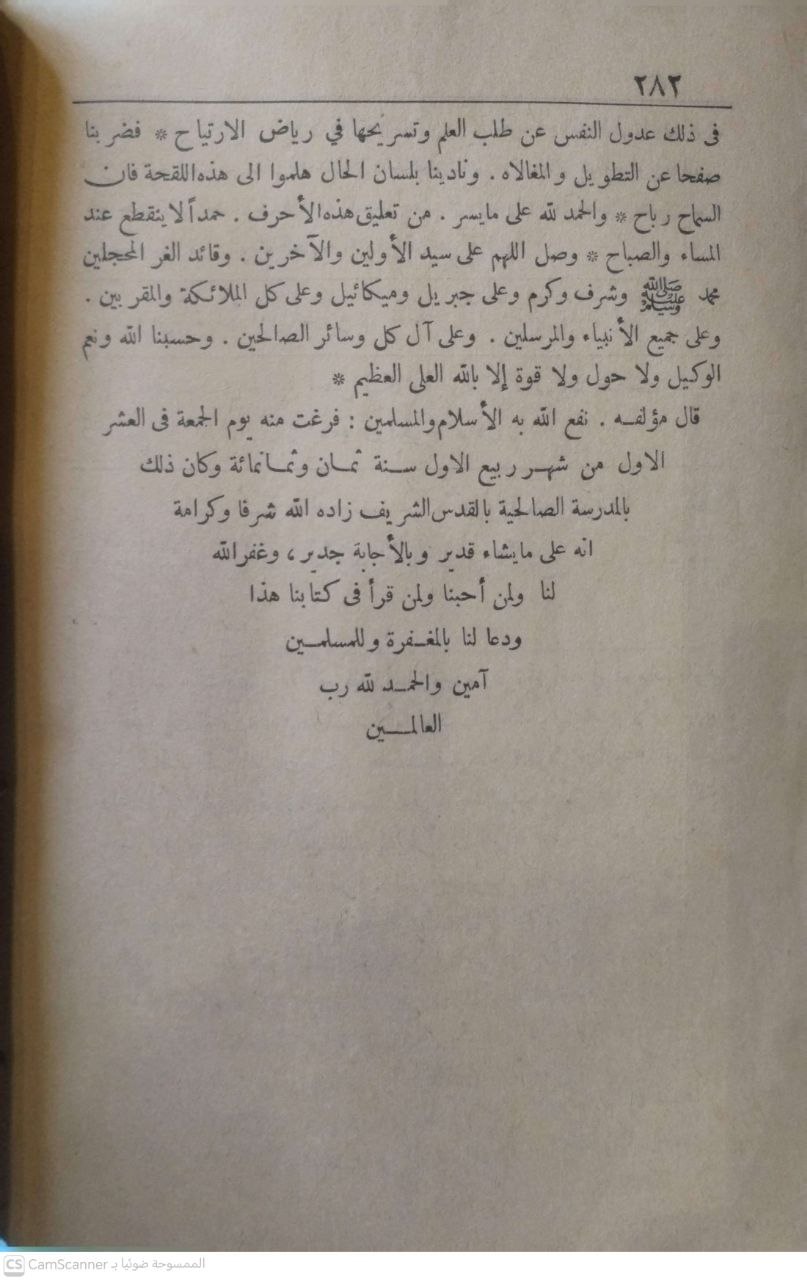 ٢٨٢
فى ذلك عدول النفس عن طلب العلم وتسريحها في رياض الارتياح * فضربنا
صفحا عن التطويل والمغالاه . ونادينا بلسان الحال هلموا الى هذه اللقحة فان
السماح رباح * والحمد لله على مايسر . من تعليق هذه الأحرف . حمداً لا ينقطع عند
المساء والصباح * وصل اللهم على سيد الأولين والآخرين . وقائد الغر المحجلين
محمد ﷺ وشرف وكرم وعلى جبريل وميكائيل وعلى كل الملائكة والمقربين .
وعلى جميع الأنبياء والمرسلين . وعلى آل كل وسائر الصالحين . وحسبنا الله ونعم
الوكيل ولا حول ولا قوة إلا بالله العلى العظيم *
قال مؤلفه . نفع الله به الأسلام والمسلمين : فرغت منه يوم الجمعة فى العشر
الاول من شهر ربيع الاول سنة ثمان وثمانمائة وكان ذلك
بالمدرسة الصالحية بالقدس الشريف زاده الله شرفا وكرامة
انه على مايشاء قدير وبالأجابة جدير ، وغفر الله
لنا ولمن أحبنا ولمن قرأ فى كتابنا هذا
ودعا لنا بالمغفرة وللمسلمين
آمين والحمد لله رب
العالمين
CS CamScanner الممسوحة ضوئيا بـ